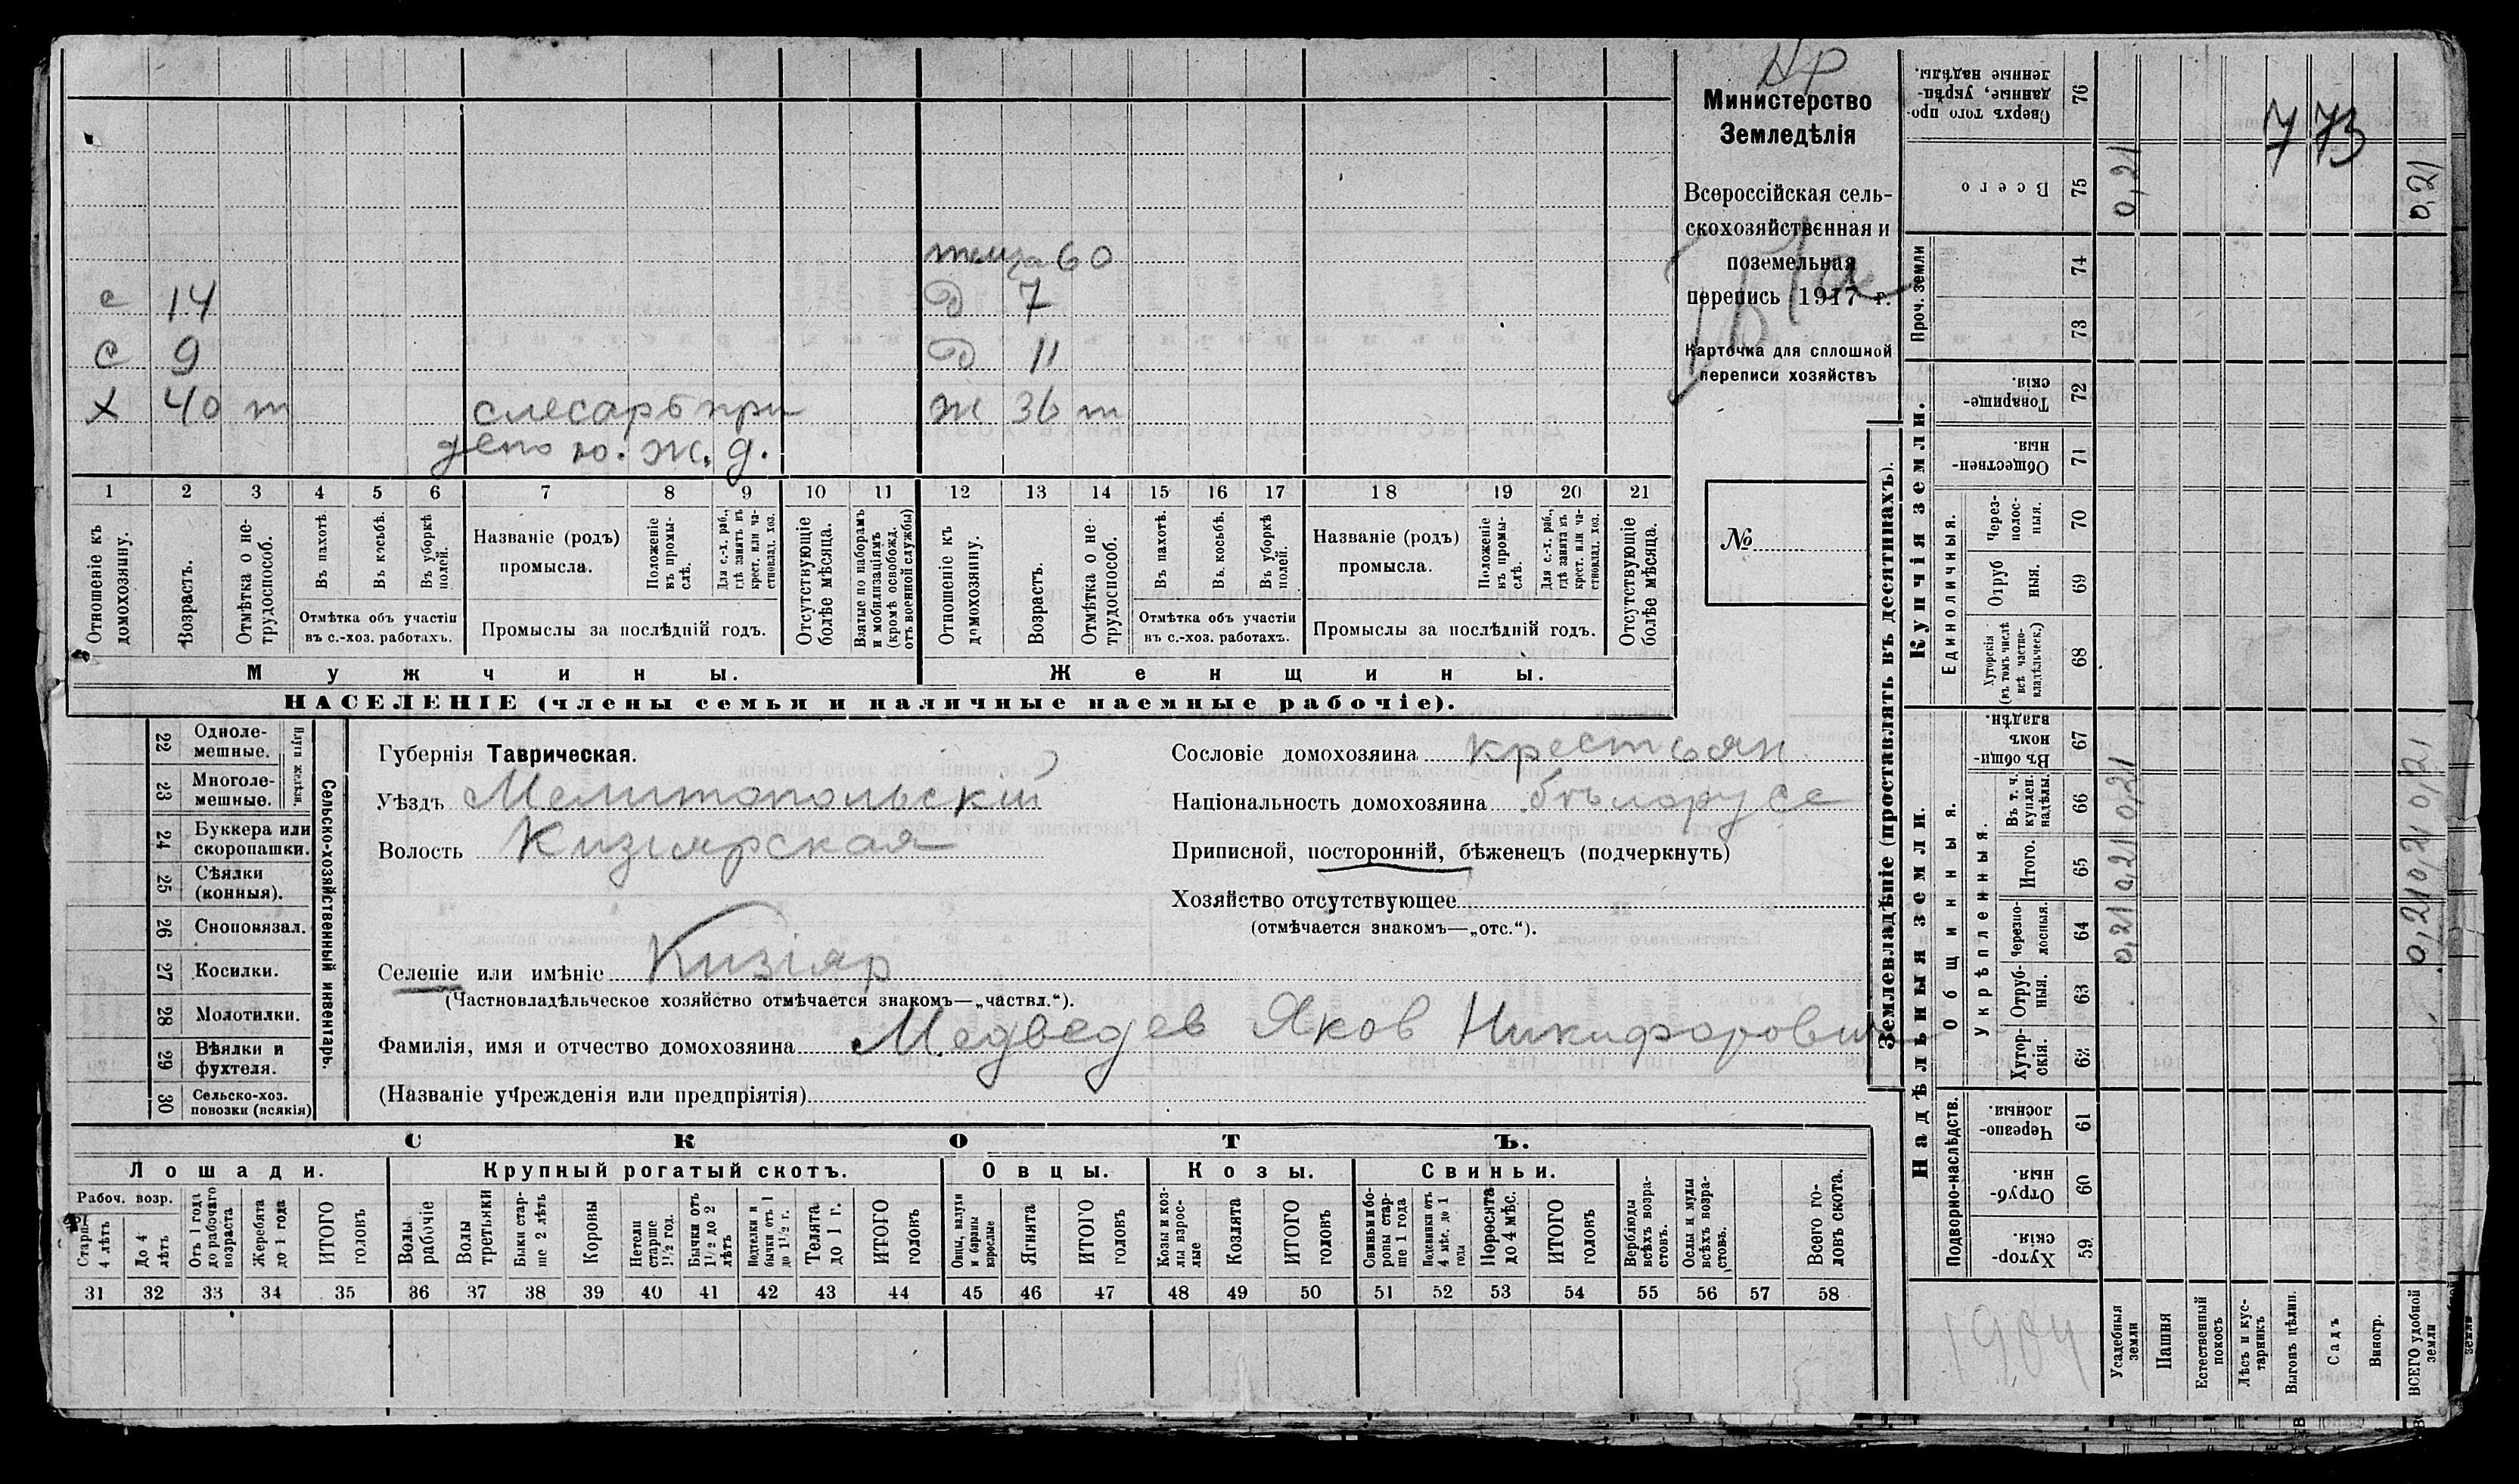 Нр
Министерство
Земледѣлія
Всероссійская сель-
скохозяйственная и
поземельная
перепись 1917 г.
Карточка для сплошной
переписи хозяйствъ
№
773
теща 60
с 14 Д 7
с 9 Д 11
х 40 т слесарь при Ж 36 т
депо ю. ж. д.
1 2 3 4 5 6 7 8 9 10 11 12 13 14 15 16 17 18 19 20 21
Отношеніе къ домохозяину.
Возрастъ.
Отмѣтка о не-трудоспособ.
Въ пахотѣ.
Въ косьбѣ.
Въ уборкѣ полей.
Отмѣтка объ участіи въ с.-хоз. работахъ.
Названіе (родъ) промысла.
Положеніе въ промы-слѣ.
Для с.-х. раб., гдѣ занятъ въ крест. или ча-стновлад. хоз.
Промыслы за послѣдній годъ.
Отсутствующіе болѣе мѣсяца.
Взятые по наборамъ и мобилизаціямъ (кромѣ освобожд. отъ военной службы)
Отношеніе къ домохозяину.
Возрастъ.
Отмѣтка о не-трудоспособ.
Въ пахотѣ.
Въ косьбѣ.
Въ уборкѣ полей.
Отмѣтка объ участіи въ с.-хоз. работахъ.
Названіе (родъ) промысла.
Положеніе въ промы-слѣ.
Для с.-х. раб., гдѣ занята въ крест. или ча-стновлад. хоз.
Промыслы за послѣдній годъ.
Отсутствующіе болѣе мѣсяца.
Мужчины. Женщины.
НАСЕЛЕНІЕ (члены семьи и наличные наемные рабочіе).
22 Одноле-мешные.
23 Многоле-мешные.
Плуги желѣзн.
24 Буккера или скоропашки.
25 Сѣялки (конныя).
26 Сноповязал.
27 Косилки.
28 Молотилки.
29 Вѣялки и фухтеля.
30 Сельско-хоз. повозки (всякія)
Сельско-хозяйственный инвентарь.
Губернія Таврическая.
Уѣздъ Мелитопольскій
Волость Кизіярская
Селеніе или имѣніе Кизіяр
(Частновладѣльческое хозяйство отмѣчается знакомъ—„частвл.“).
Фамилія, имя и отчество домохозяина Медведев Яков Никифорович
(Названіе учрежденія или предпріятія)
Сословіе домохозяина крестьян
Національность домохозяина бѣлорусс
Приписной, посторонній, бѣженецъ (подчеркнуть)
Хозяйство отсутствующее
(отмѣчается знакомъ—„отс.“).
СКОТЪ.
Лошади. Крупный рогатый скотъ. Овцы. Козы. Свиньи.
Рабоч. возр.
Старше 4 лѣтъ
До 4 лѣтъ
Отъ 1 года до рабочаго возраста
Жеребята до 1 года
ИТОГО головъ
Волы рабочіе
Волы третьяки
Быки стар-ше 2 лѣтъ
Коровы
Нетели старше 1½ год.
Бычки отъ 1½ до 2 лѣтъ
Подтелки и бычки отъ 1 до 1½ г.
Телята до 1 г.
ИТОГО головъ
Овцы, валухи и бараны взрослые
Ягнята
ИТОГО головъ
Козы и коз-лы взрос-лые
Козлята
ИТОГО головъ
Свиньи и бо-ровы стар-ше 1 года
Подсвинки отъ 4 мѣс. до 1 года
Поросята до 4 мѣс.
ИТОГО головъ
Верблюды всѣхъ возра-стовъ.
Ослы и мулы всѣхъ возра-стовъ.
Всего го-ловъ скота.
31 32 33 34 35 36 37 38 39 40 41 42 43 44 45 46 47 48 49 50 51 52 53 54 55 56 57 58
Землевладѣніе (проставлять въ десятинахъ).
Купчія земли.
Надѣльныя земли.
Сверхъ того про-данные, укрѣп-ленные надѣлы. 76
Всего 75 0,21 0,21
Проч. земли 74 73
Товарище-скія. 72
Обществен-ныя. 71
Единоличныя.
Через-полос-ныя. 70
Отруб ныя. 69
Хуторскія (въ томъ числѣ всѣ частно-владѣльческ.) 68
Общинныя.
Въ общи-номъ владѣн. 67
Укрѣпленныя.
Въ т. ч. куплен. надѣлы. 66 0,21 0,21
Итого. 65 0,21 0,21
Черезпо-лосныя. 64 0,21 0,21
Отруб-ныя. 63
Хутор-скія. 62
Подворно-наслѣдств.
Черезпо-лосныя. 61
Отруб-ныя. 60
Хутор-скія. 59
1904
Усадебныя земли
Пашня
Естественный покосъ
Лѣсъ и кус-тарникъ
Выгонъ цѣлин.
Садъ
Виногр.
ВСЕГО удобной земли